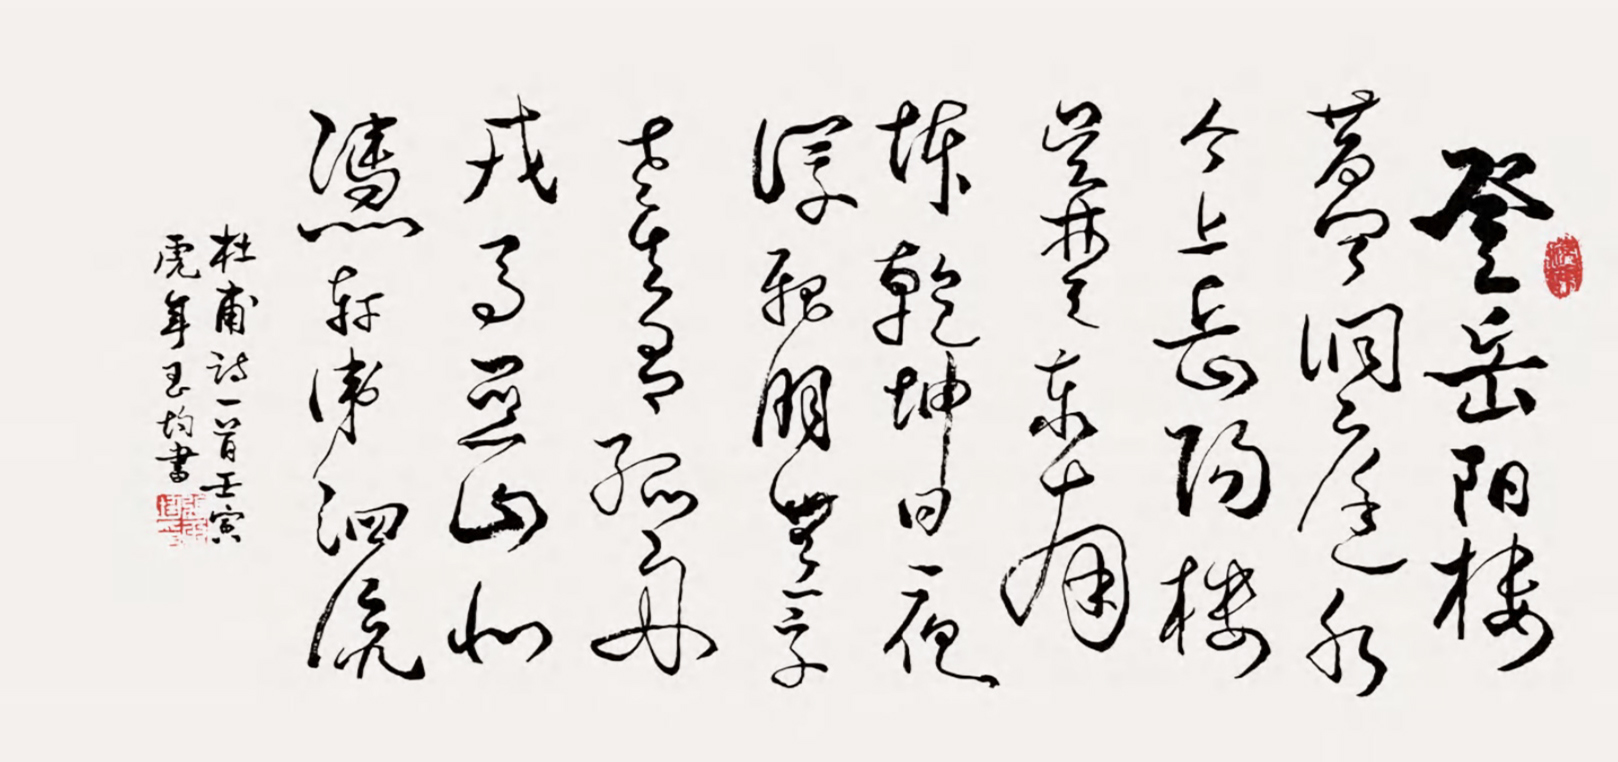 登岳阳楼
昔闻洞庭水
今上岳陽楼
吴楚东南
坼乾坤日夜
浮親朋無一字
老去有孤舟
戎马關山北
憑轩涕泗流
杜甫诗一首壬寅
虎年玉均書